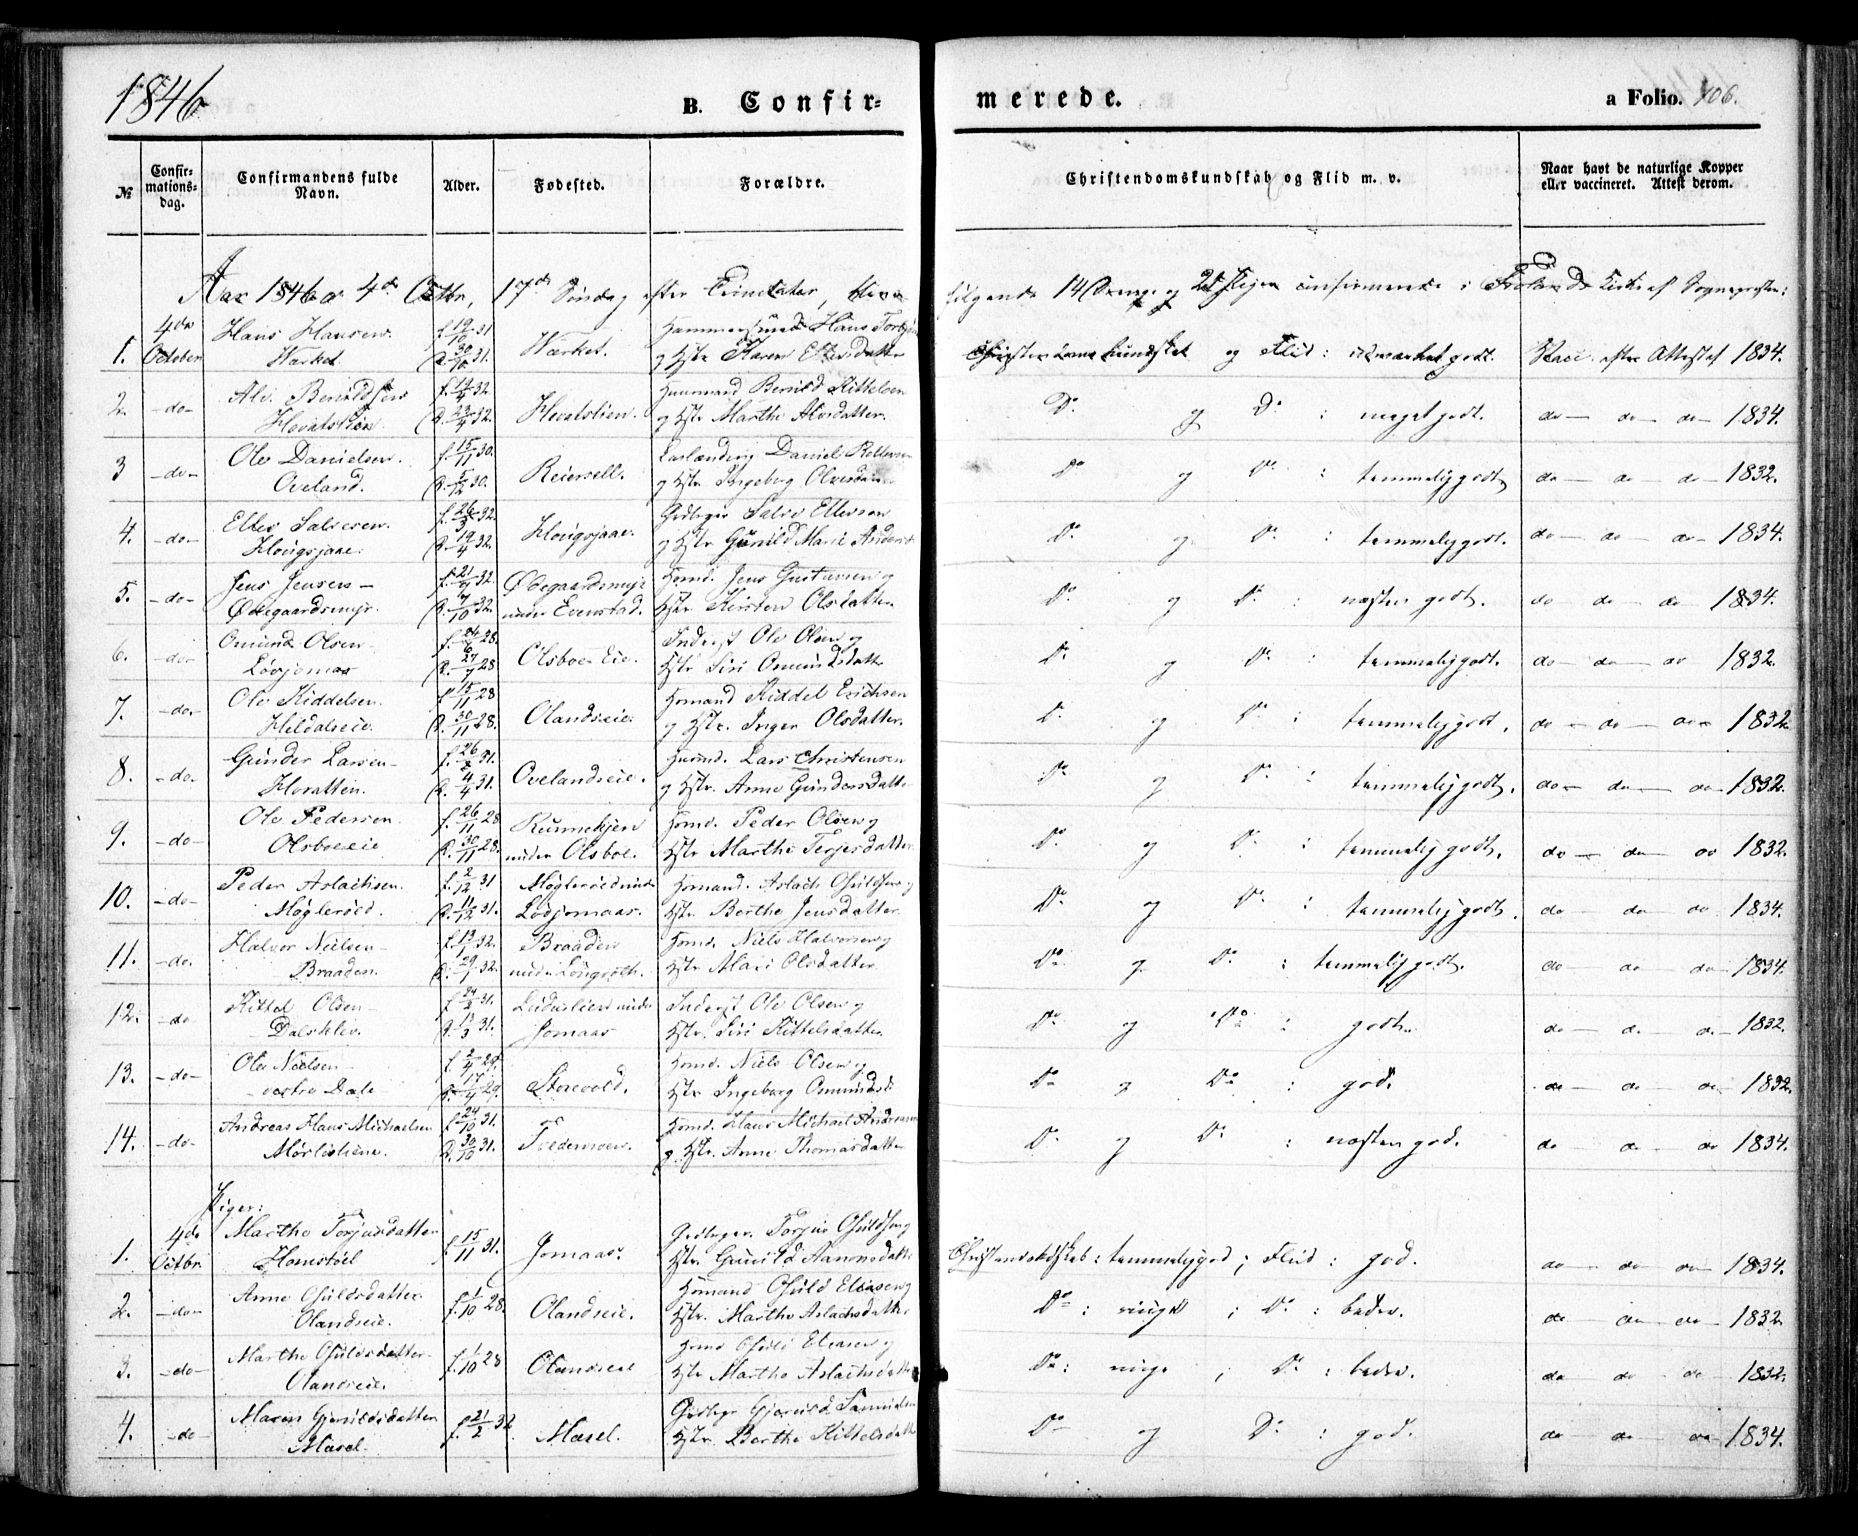 1846
B. Confir-
merede.
a Folio. 106.
№
Confir-
mations-
dag.
Confirmandens fulde
Navn.
Alder.
Fødested.
Forældre.
Christendomskundskab og Flid m. v.
Naar havt de naturlige Kopper
eller vaccineret. Attest derom.
Aar 1846 d 4de Octbr, 17de Søndag efter Trinitatis, bleve følgende 14 Drenge og 21 Piger confirmerede i Frolands Kirke af Sognepresten:
1. 4de Hans Hansen f. 19/10 31 Hammersmed Hans
October Værket. d. 30/10 31. Værket. og Hstr Karen Ellevsdatter Christendomskundskab og Flid: udmærket godt. Vacc. efter Attest af 1834.
2. -do- Alv. Beruldsen f. 14/4 32 Huusmand Beruld Kittelsen
d. 23/4 32. og Hstr Marthe Alvsdatter. Do og Do: meget godt. do do do 1834.
3 -do- Ole Danielsen. f. 15/11 30. Daniel
Oveland. d. 5/12 30. Reiersell. og Hstr Ingeborg Do og Do: temmelig godt do do do 1832.
4. -do- Ellev Salvesen. f. 26/3 32. Salve Ellevsen
Hougsjaae. d. 19/4 32. Hougsjaae. og Hstr Gunild Marie Do og Do: temmelig godt. do do do 1834.
5. -do- Jens Jensen f. 21/9 32. Ødegaardsmyr Hsmd. Jens Gustavsen og
Ødegaardsmyr. d. 7/10 32. under Evenstad. Hstr Kirsten Olsdatter Do og Do: næsten godt. do do do 1834.
6. -do- Omund Olsen f. 24/6 28. Inderst Ole Olsen og
Løvjomas d. 27/7 28 Olsboe Eie. Hstr Siri Omundsdatter Do og Do: temmelig godt. do do do 1832.
7. -do- Ole Kiddelsen. f. 15/11 28 Hsmand Kiddel Erichsen
Hildalseie. d. 30/11 28. Olandseie. og Hstr. Inger Olsdatter. Do og Do: temmelig godt. do do do 1832.
8. -do- Gunder Larsen f. 26/2 31. Husmd. Lars Christensen
d. 4/4 31. Ovelandseie. og Hstr. Anne Gundersdatter Do og Do: temmelig godt. do do do 1832.
9. -do- Ole Pedersen. f. 26/11 28 Hsmd. Peder Olsen og
Olsboeeie d. 30/11 28. under Olsboe. Hstr Marthe Terjesdatter Do og Do: temmelig godt. do do do 1832.
10. -do- Peder Aslachsen. f. 2/12 31 Møglerøld under Hsmand. Aslach og
Møglerøld. d. 11/12 31. Løvjomaas. Hstr Berthe Jensdatter Do og Do: temmelig godt. do do do 1834.
11. -do. Halvor Nielsen f. 13/1 32. Braaden Hsmd. Niels Halvorsen og
Braaden. d. 29/1 32. under Hstr Mari Olsdatter Do og Do: temmelig godt. do do do 1834.
12. -do Kittel Olsen f. 24/2 31. under Inderst Ole Olsen og
Dalsklev. d. 13/3 31. Jomaas Hstr. Siri Kittelsdatter Do og Do: godt. do do do 1832.
13. -do- Ole Nielsen f. 2/4 29. Hsmd. Niels Olsen og
vestre Dale d. 17/4 29. Storevold. Hstr Ingeborg Omundsd. Do og Do: god. do do do 1832.
14. -do- Andreas Hans Michaelsen f. 24/10 31. Hsmd. Hans Michael Andreasen
d. 30/10 31. Tredemoen. og Hstr. Anne Thomasdatter Do og Do: næsten god. do do do 1834.
Piger:
1. 4de Marthe Torjusdatter f. 15/11 31. Torjus og
Octbr Homstøel Jomaas. Hstr. Gunild Aanonsdatter Christendomskdskab: temmelig god; Flid: god. do do do 1834.
2. -do- Anne f. 1/10 28. Hsmand Eliasen og
Olandseie. Olandseie. Hstr. Marthe Aslachsdatter Do: ringe; Do: bedre. do do do 1832
3. -do- Marthe f. 1/10 28 Hsmd Eliasen og
Olandseie. Olandseie Hstr Marthe Aslachsdatter Do: ringe; Do: bedre. do do do 1832.
4. -do Maren Gjeruldsdatter f. 21/2 32 Gjeruld
Mæsel. Mæsel. Hstr. Berthe Kittelsdatter Do og Do: god. do do do 1834.